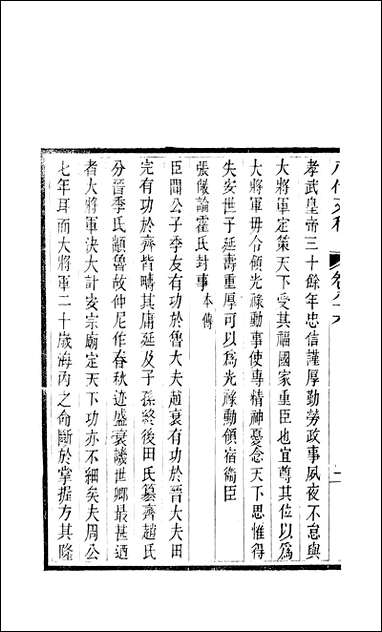 孝武皇帝三十餘年忠信謹厚勤勞政事夙夜不怠與
大將軍定策天下受其福國家重臣也宜尊其位以爲
大將軍毋令領光祿勳事使專精神憂念天下思惟得
失安世子延壽重厚可以爲光祿勳領宿衞臣
張儆論霍氏封事本傳
臣聞公子季友有功於魯大夫趙衰有功於晉大夫田
完有功於齊皆疇其庸延及子孫終後田氏簒齊趙氏
分晉季氏顓魯故仲尼作春秋迹盛衰譏世卿最甚迺
者大將軍決大計安宗廟定天下功亦不細矣夫周公
七年耳而大將軍二十歲海內之命斷於掌握方其隆